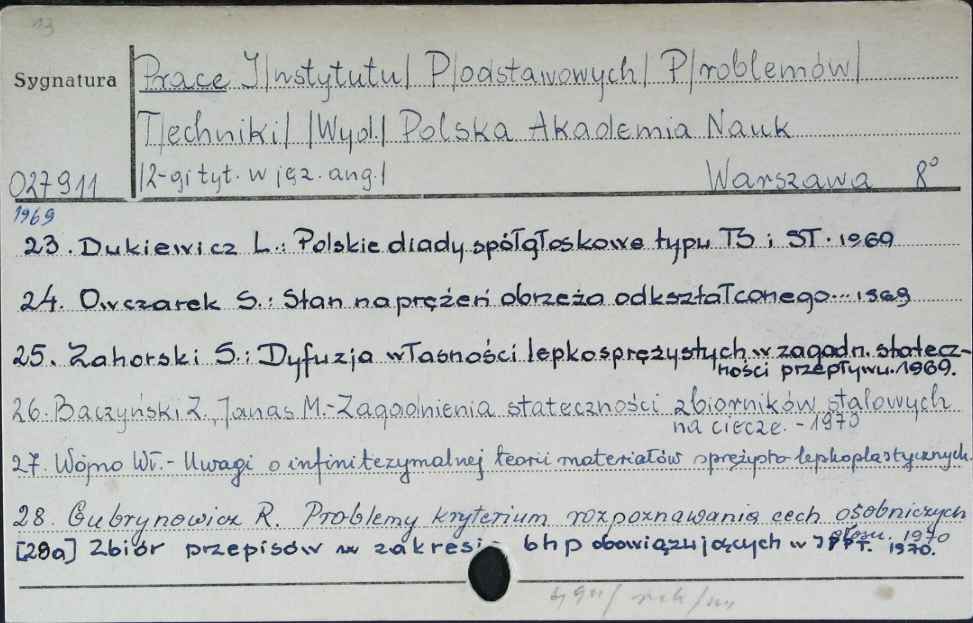 13
Sygnatura
Prace I/nstytutu/ P/odstawowych/ P/roblemów/
T/echniki/ /Wyd./ Polska Akademia Nauk
027911 /2-gi tyt. w jęz. ang./ Warszawa 8°
1969
23. Dukiewicz L.: Polskie diady spółgłoskowe typu TS i ST. 1969
24. Owczarek S.: Stan naprężeń obrzeża odkształconego... 1969
25. Zahorski S.: Dyfuzja własności lepkosprężystych w zagadn. statecz-
ności przepływu. 1969.
26. Baczyński Z, Janas M.- Zagadnienia stateczności zbiorników stalowych
na ciecze. - 1970
27. Wojno Wł.- Uwagi o infinitezymalnej teorii materiałów sprężysto-lepkoplastycznych.
28. Gubrynowicz R. Problemy kryterium rozpoznawania cech osobniczych
głosu. 1970
[28a] Zbiór przepisów w zakresie bhp obowiązujących w IPPT. 1970.